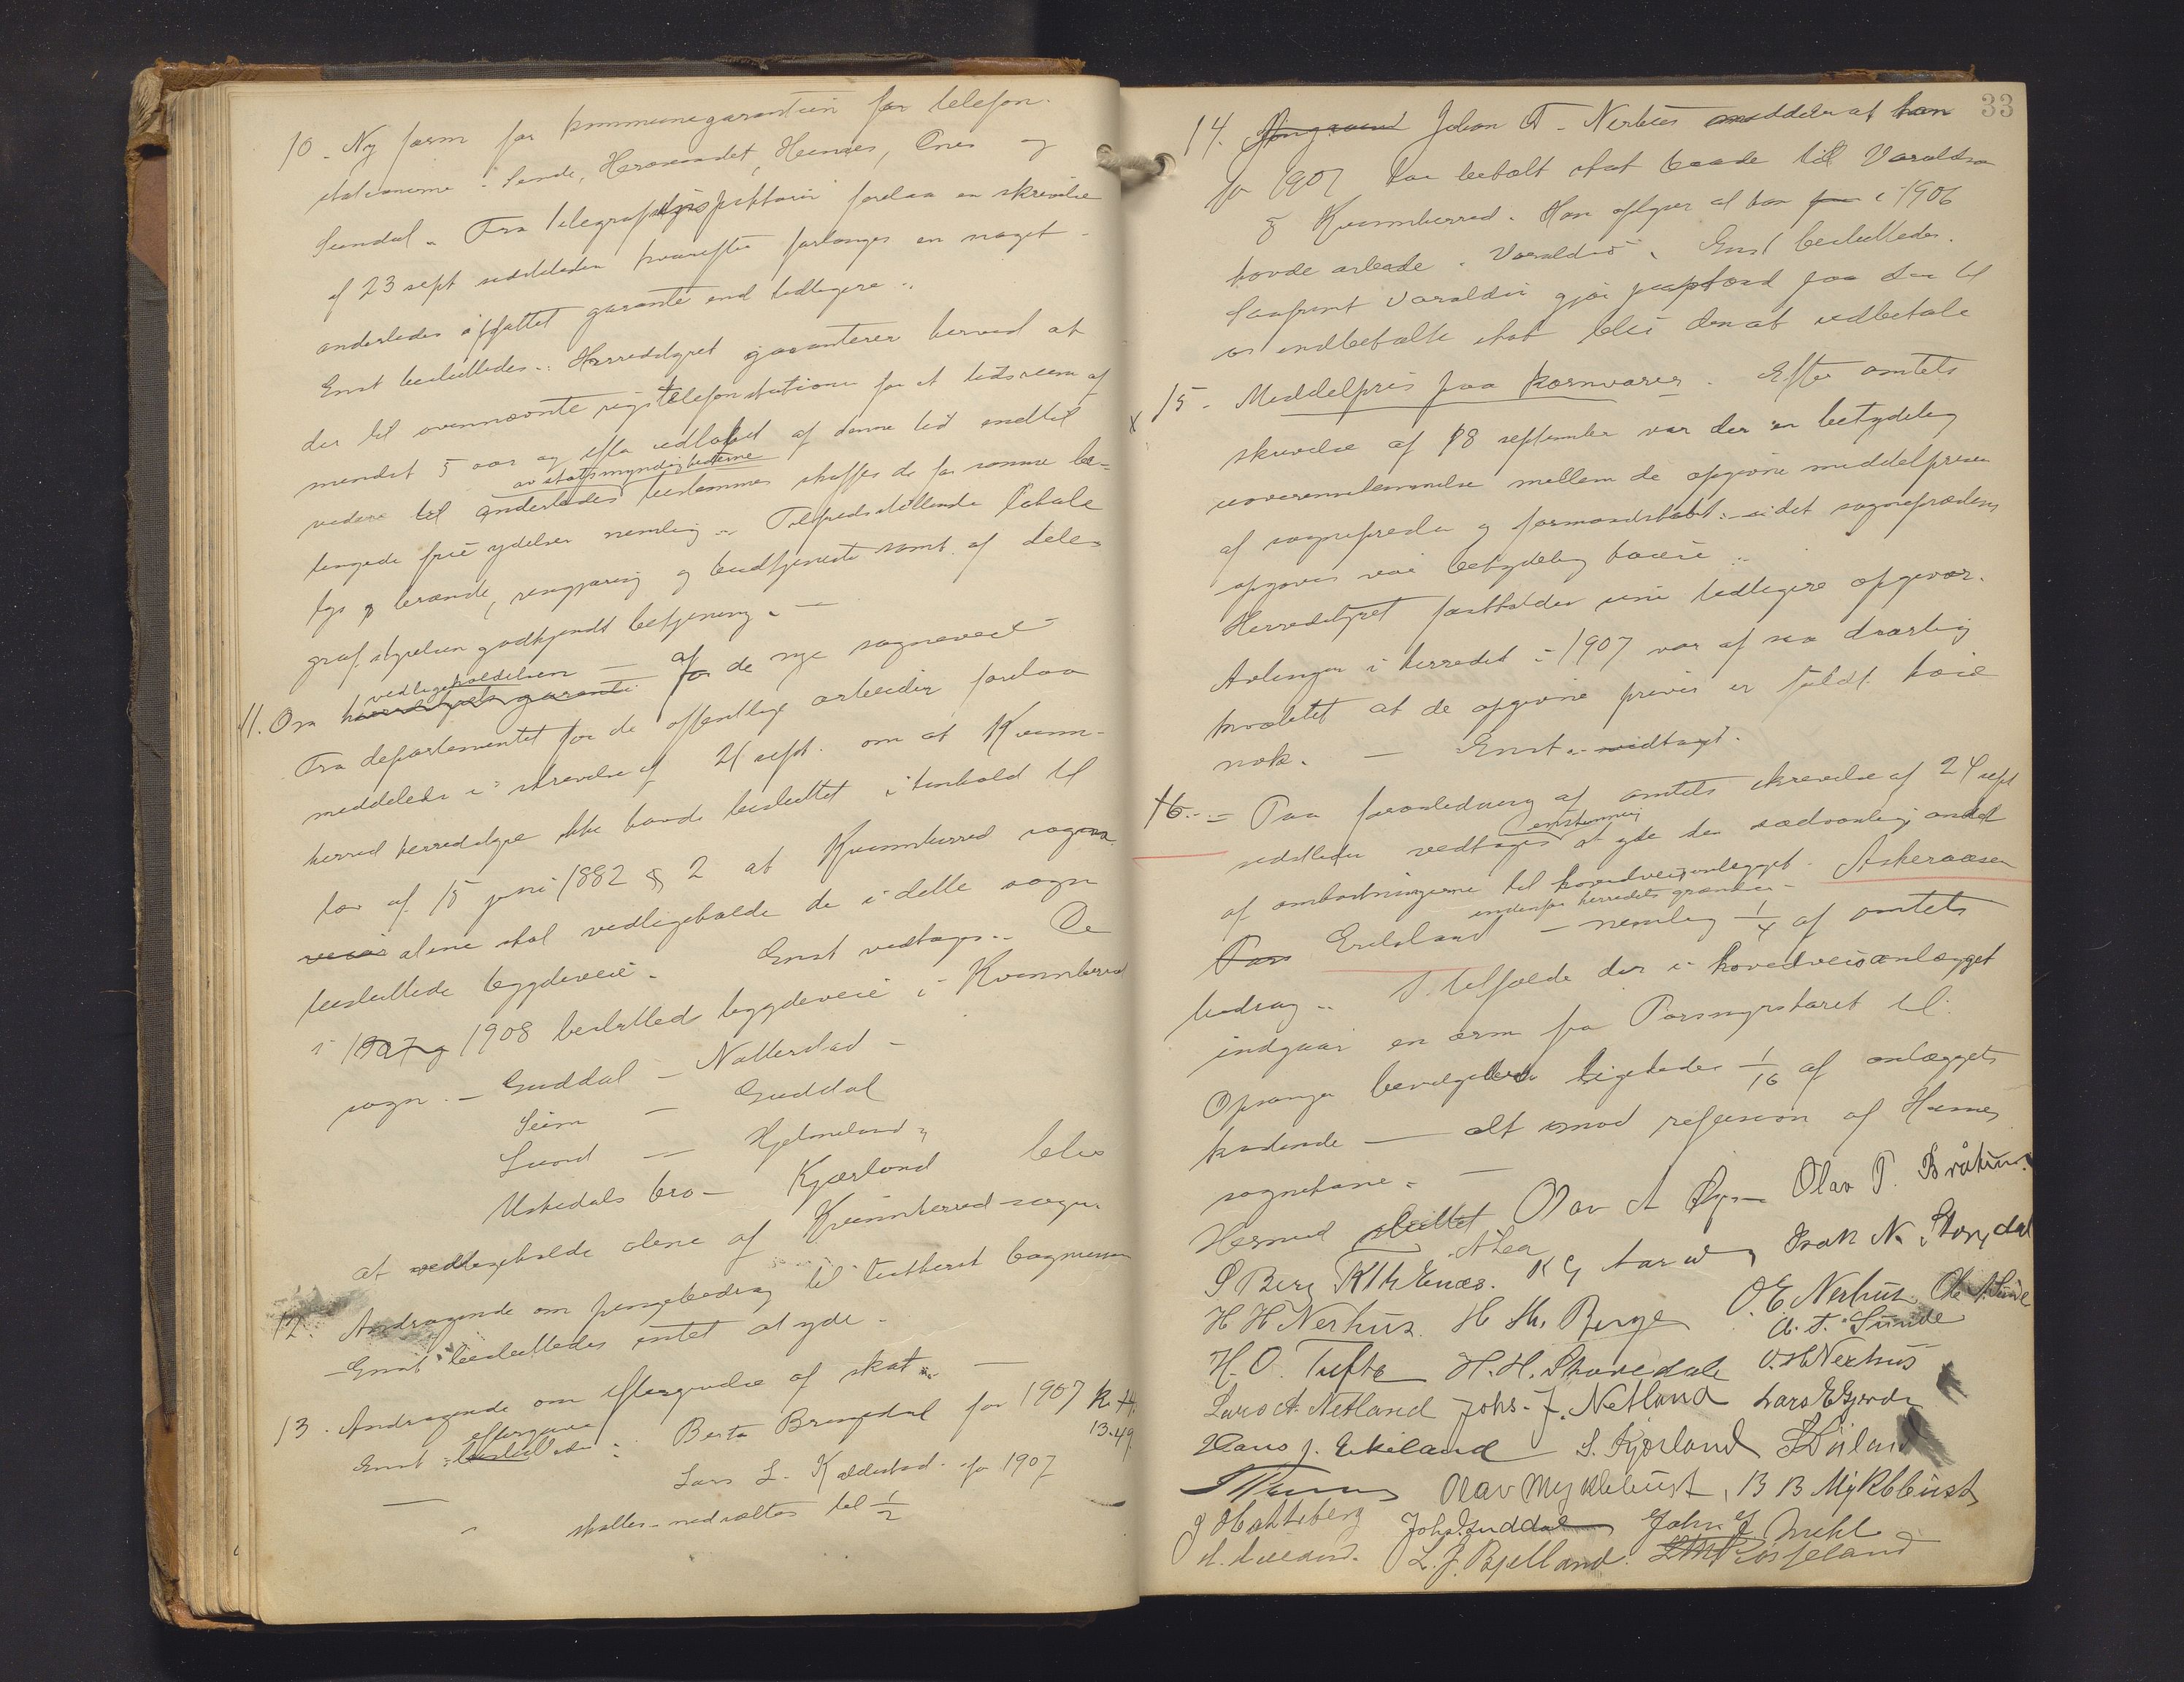 10. Ny form for kommunegarantien for telefon-
stationerne i Sunde, Herøsundet, Husnes, Ønes og
Sundal. Fra telegrafinspektøren forelaa en skrivelse
af 23 sept sidstleden hvorefter forlanges en noget
anderledes affattet garanti end tidligere.
Enst besluttedes: Herredstyret garanterer herved at
der til ovennævnte rigstelefonstationer for et tidsrum af
mindst 5 aar og efter udløbet af denne tid indtil
av statsmyndighederne
videre til anderledes bestemmes skaffes de for samme be-
tingede frie ydelser nemlig: Tilfredsstillende lokale
lys og brænde, rengjøring og budtjeneste samt af tele-
grafstyrelsen godkjendt betjening. —
vedligeholdelsen — af
11. Om herredsgarante for de nye sogneveie
Fra departementet for de offentlige arbeider forelaa
meddelelse i skrivelse af 21 sept. om at Kvinn-
herred herredstyre ikke havde besluttet i henhold til
lov af 15 juni 1882 § 2 at Kvinnherred sogn
alene skal vedligeholde de i dette sogn
besluttede bygdeveie. Enst vedtages: De
i 1907 og 1908 besluttede bygdeveie i Kvinnherred
sogn: — Guddal — Nattersted —
Seim — Guddal
Lund — Hjelmeland og
Uskedals bro — Kjærland blir
at vedligeholde alene af Kvinnherred sogn.
12. Andragende om pengebidrag til
Enst besluttedes intet at yde.
13. Andragende om eftergivelse af skat. —
eftergives
Enst besluttedes: Berta Bringedal for 1907 kr
13.49
— " Lars L. Kaldestad for 1907
skatten nedsættes til 1/2
33
14. Johan A. Nerhus meddeler at han
for 1907 har betalt skat baade til Varaldsø
og Kvinnherred. Han oplyser at han i 1906
havde arbeide i Varaldsø. Enst besluttedes.
Saafremt Varaldsø gjør paastand paa den til
os indbetalte skat blir den at udbetale
x 15. Middelpris paa kornvarer. Efter amtets
skrivelse af 18 september var der en betydelig
uoverensstemmelse mellem de opgivne middelpriser
af sogneprester og formandskabet: — idet sogneprestens
opgaver var betydelig høiere.
Herredstyret fastholder sine tidligere opgaver.
Avlingen i herredet i 1907 var af saa daarlig
kvalitet at de opgivne priser er fuldt høie
nok. — Enst. vedtaget.
16. — Paa foranledning af amtets skrivelse af 24 sept
enstemmig
sidstleden vedtages at yde den sædvanlig andel
af omkostningerne til hovedveianlægget Askeraasen
indenfor herredets grænser —
Eikeland — nemlig 1/4 af amtets
bidrag. I tilfælde der i hovedveisanlægget
indgaar en arm fra Porsmyrskaret til
Opsanger bevilgedes ligeledes 1/16 af anlæggets
kostende — alt imod refusion af Husnes
sognekasse. —
Hermed sluttet Olav A Olav T. Bråtun
S Berg K Th Enæs. A Lea K G Isak N. Skorpedal
H H Nerhus. H Th. Berge O. E. Nerhus Ole Sunde
A. T. Sunde
H. O. Tufte H. H. Skorpedal O. H. Nerhus
Lars A. Netland Johs. J. Netland Lars E Gjerde
Hans J. Eikeland S. Kjærland
Olav Myklebust, B B Myklebust
J Hatteberg Johs Guddal John J Mehl
L. J. Bjelland.